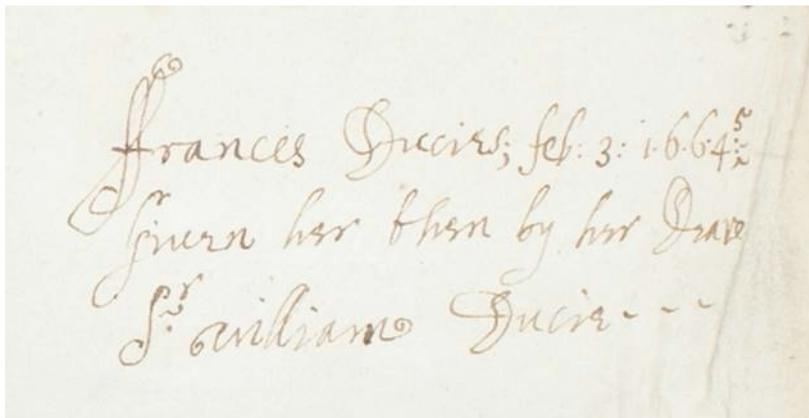 ffrances Ducies; feb: 3: 1.6.6.4 5
giuen her then by her Deare
Sr. william Ducie - - -